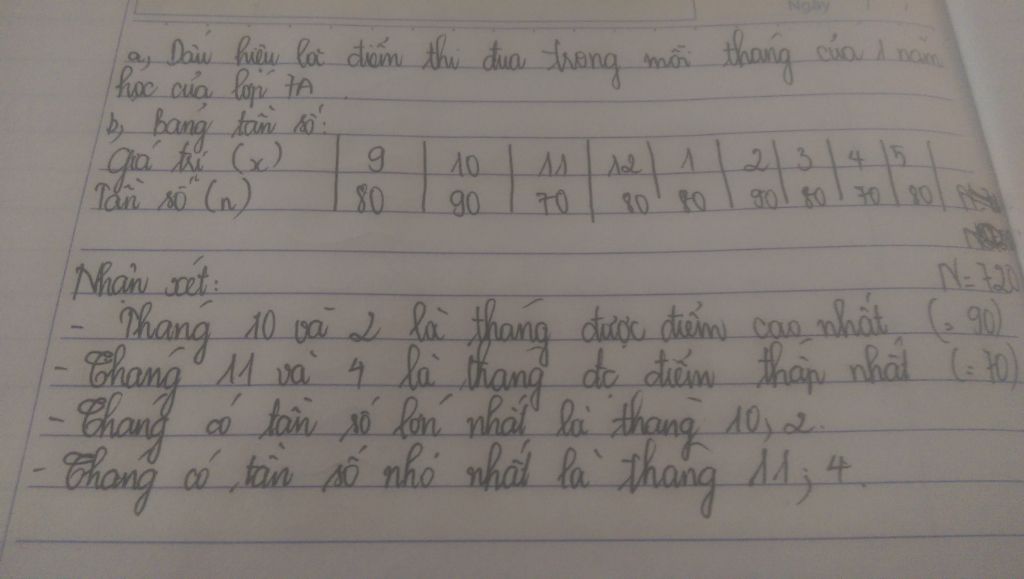 Ngày
a, Dấu hiệu là: điểm thi đua trong mỗi tháng của 1 năm
học của lớp 7A
b, bảng tần số:
Giá trị (x) 9 10 11 12 1 2 3 4 5
Tần số (n) 80 90 70 80 80 90 80 70 80
N = 720
Nhận xét:
- Tháng 10 và 2 là tháng được điểm cao nhất (= 90)
- Tháng 11 và 4 là tháng đc điểm thấp nhất (= 70)
- Tháng có tần số lớn nhất là tháng 10, 2.
- Tháng có tần số nhỏ nhất là tháng 11; 4.